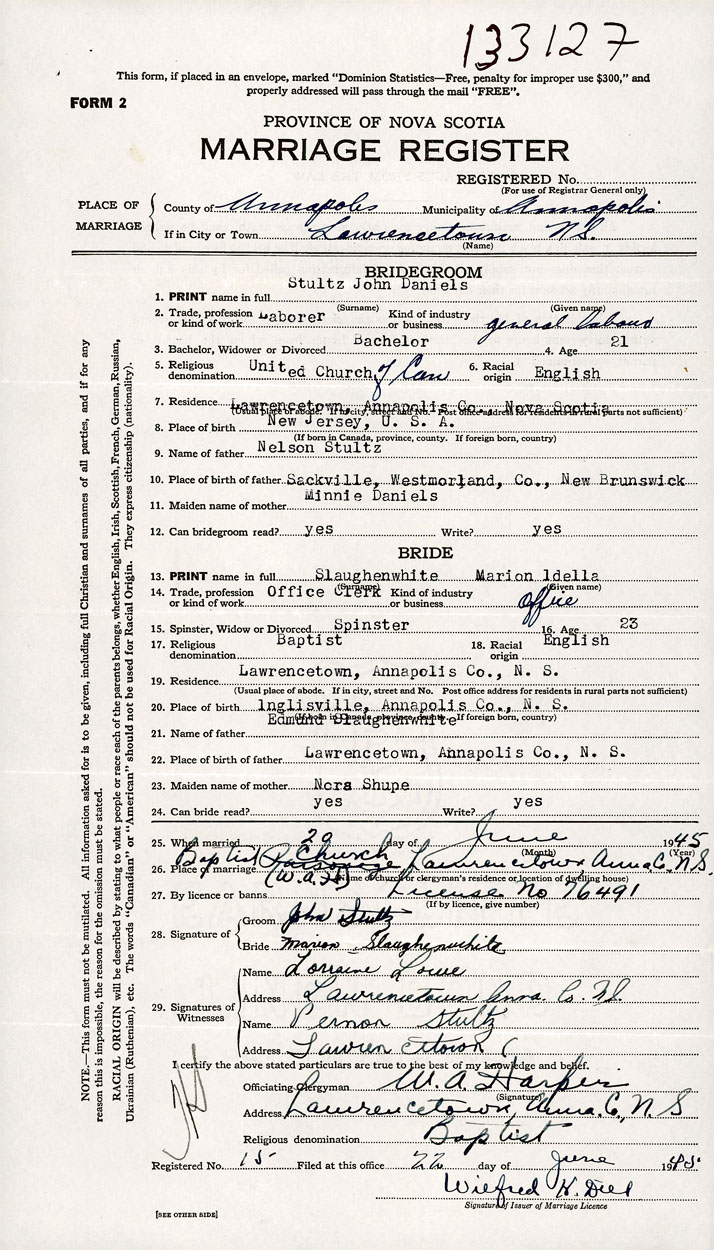 133127
This form, if placed in an envelope, marked "Dominion Statistics—Free, penalty for improper use $300," and
properly addressed will pass through the mail "FREE".
FORM 2
PROVINCE OF NOVA SCOTIA
MARRIAGE REGISTER
REGISTERED No.
(For use of Registrar General only)
PLACE OF MARRIAGE
County of Annapolis Municipality of Annapolis
If in City or Town Lawrencetown N.S.
(Name)
BRIDEGROOM
1. PRINT name in full Stultz John Daniels
(Surname) (Given name)
2. Trade, profession or kind of work Laborer Kind of industry or business general labour
3. Bachelor, Widower or Divorced Bachelor 4. Age 21
5. Religious denomination United Church of Can 6. Racial origin English
7. Residence Lawrencetown, Annapolis Co., Nova Scotia
(Usual place of abode. If in city, street and No. Post office address for residents in rural parts not sufficient)
8. Place of birth New Jersey, U. S. A.
(If born in Canada, province, county. If foreign born, country)
9. Name of father Nelson Stultz
10. Place of birth of father Sackville, Westmorland, Co., New Brunswick
11. Maiden name of mother Minnie Daniels
12. Can bridegroom read? yes Write? yes
BRIDE
13. PRINT name in full Slaughenwhite Marion Idella
(Surname) (Given name)
14. Trade, profession or kind of work Office Clerk Kind of industry or business office
15. Spinster, Widow or Divorced Spinster 16. Age 23
17. Religious denomination Baptist 18. Racial origin English
19. Residence Lawrencetown, Annapolis Co., N. S.
(Usual place of abode. If in city, street and No. Post office address for residents in rural parts not sufficient)
20. Place of birth Inglisville, Annapolis Co., N. S.
(If born in Canada, province, county. If foreign born, country)
21. Name of father Edmund Slaughenwhite
22. Place of birth of father Lawrencetown, Annapolis Co., N. S.
23. Maiden name of mother Nora Shupe
24. Can bride read? yes Write? yes
25. When married 20 day of June 1945
(Month) (Year)
26. Place of marriage Baptist Parsonage Church Lawrencetown, Anna. C. N.S.
(W.A.H) (Name of church or clergyman's residence or location of dwelling house)
27. By licence or banns License No 76491
(If by licence, give number)
28. Signature of
Groom John Stultz
Bride Marion Slaughenwhite
29. Signatures of Witnesses
Name Lorraine Lowe
Address Lawrencetown Anna. Co. N.S.
Name Vernon Stultz
Address Lawrencetown
I certify the above stated particulars are true to the best of my knowledge and belief.
Officiating Clergyman W. A. Harper
(Signature)
Address Lawrencetown, Anna. C., N S
Religious denomination Baptist
Registered No. 15 Filed at this office 22 day of June 1945
Wilfred H.
Signature of Issuer of Marriage Licence
[SEE OTHER SIDE]
NOTE.—This form must not be mutilated. All information asked for is to be given, including full Christian and surnames of all parties, and if for any
reason this is impossible, the reason for the omission must be stated.
RACIAL ORIGIN will be described by stating to what people or race each of the parents belongs, whether English, Irish, Scottish, French, German, Russian,
Ukrainian (Ruthenian), etc. The words "Canadian" or "American" should not be used for Racial Origin. They express citizenship (nationality).